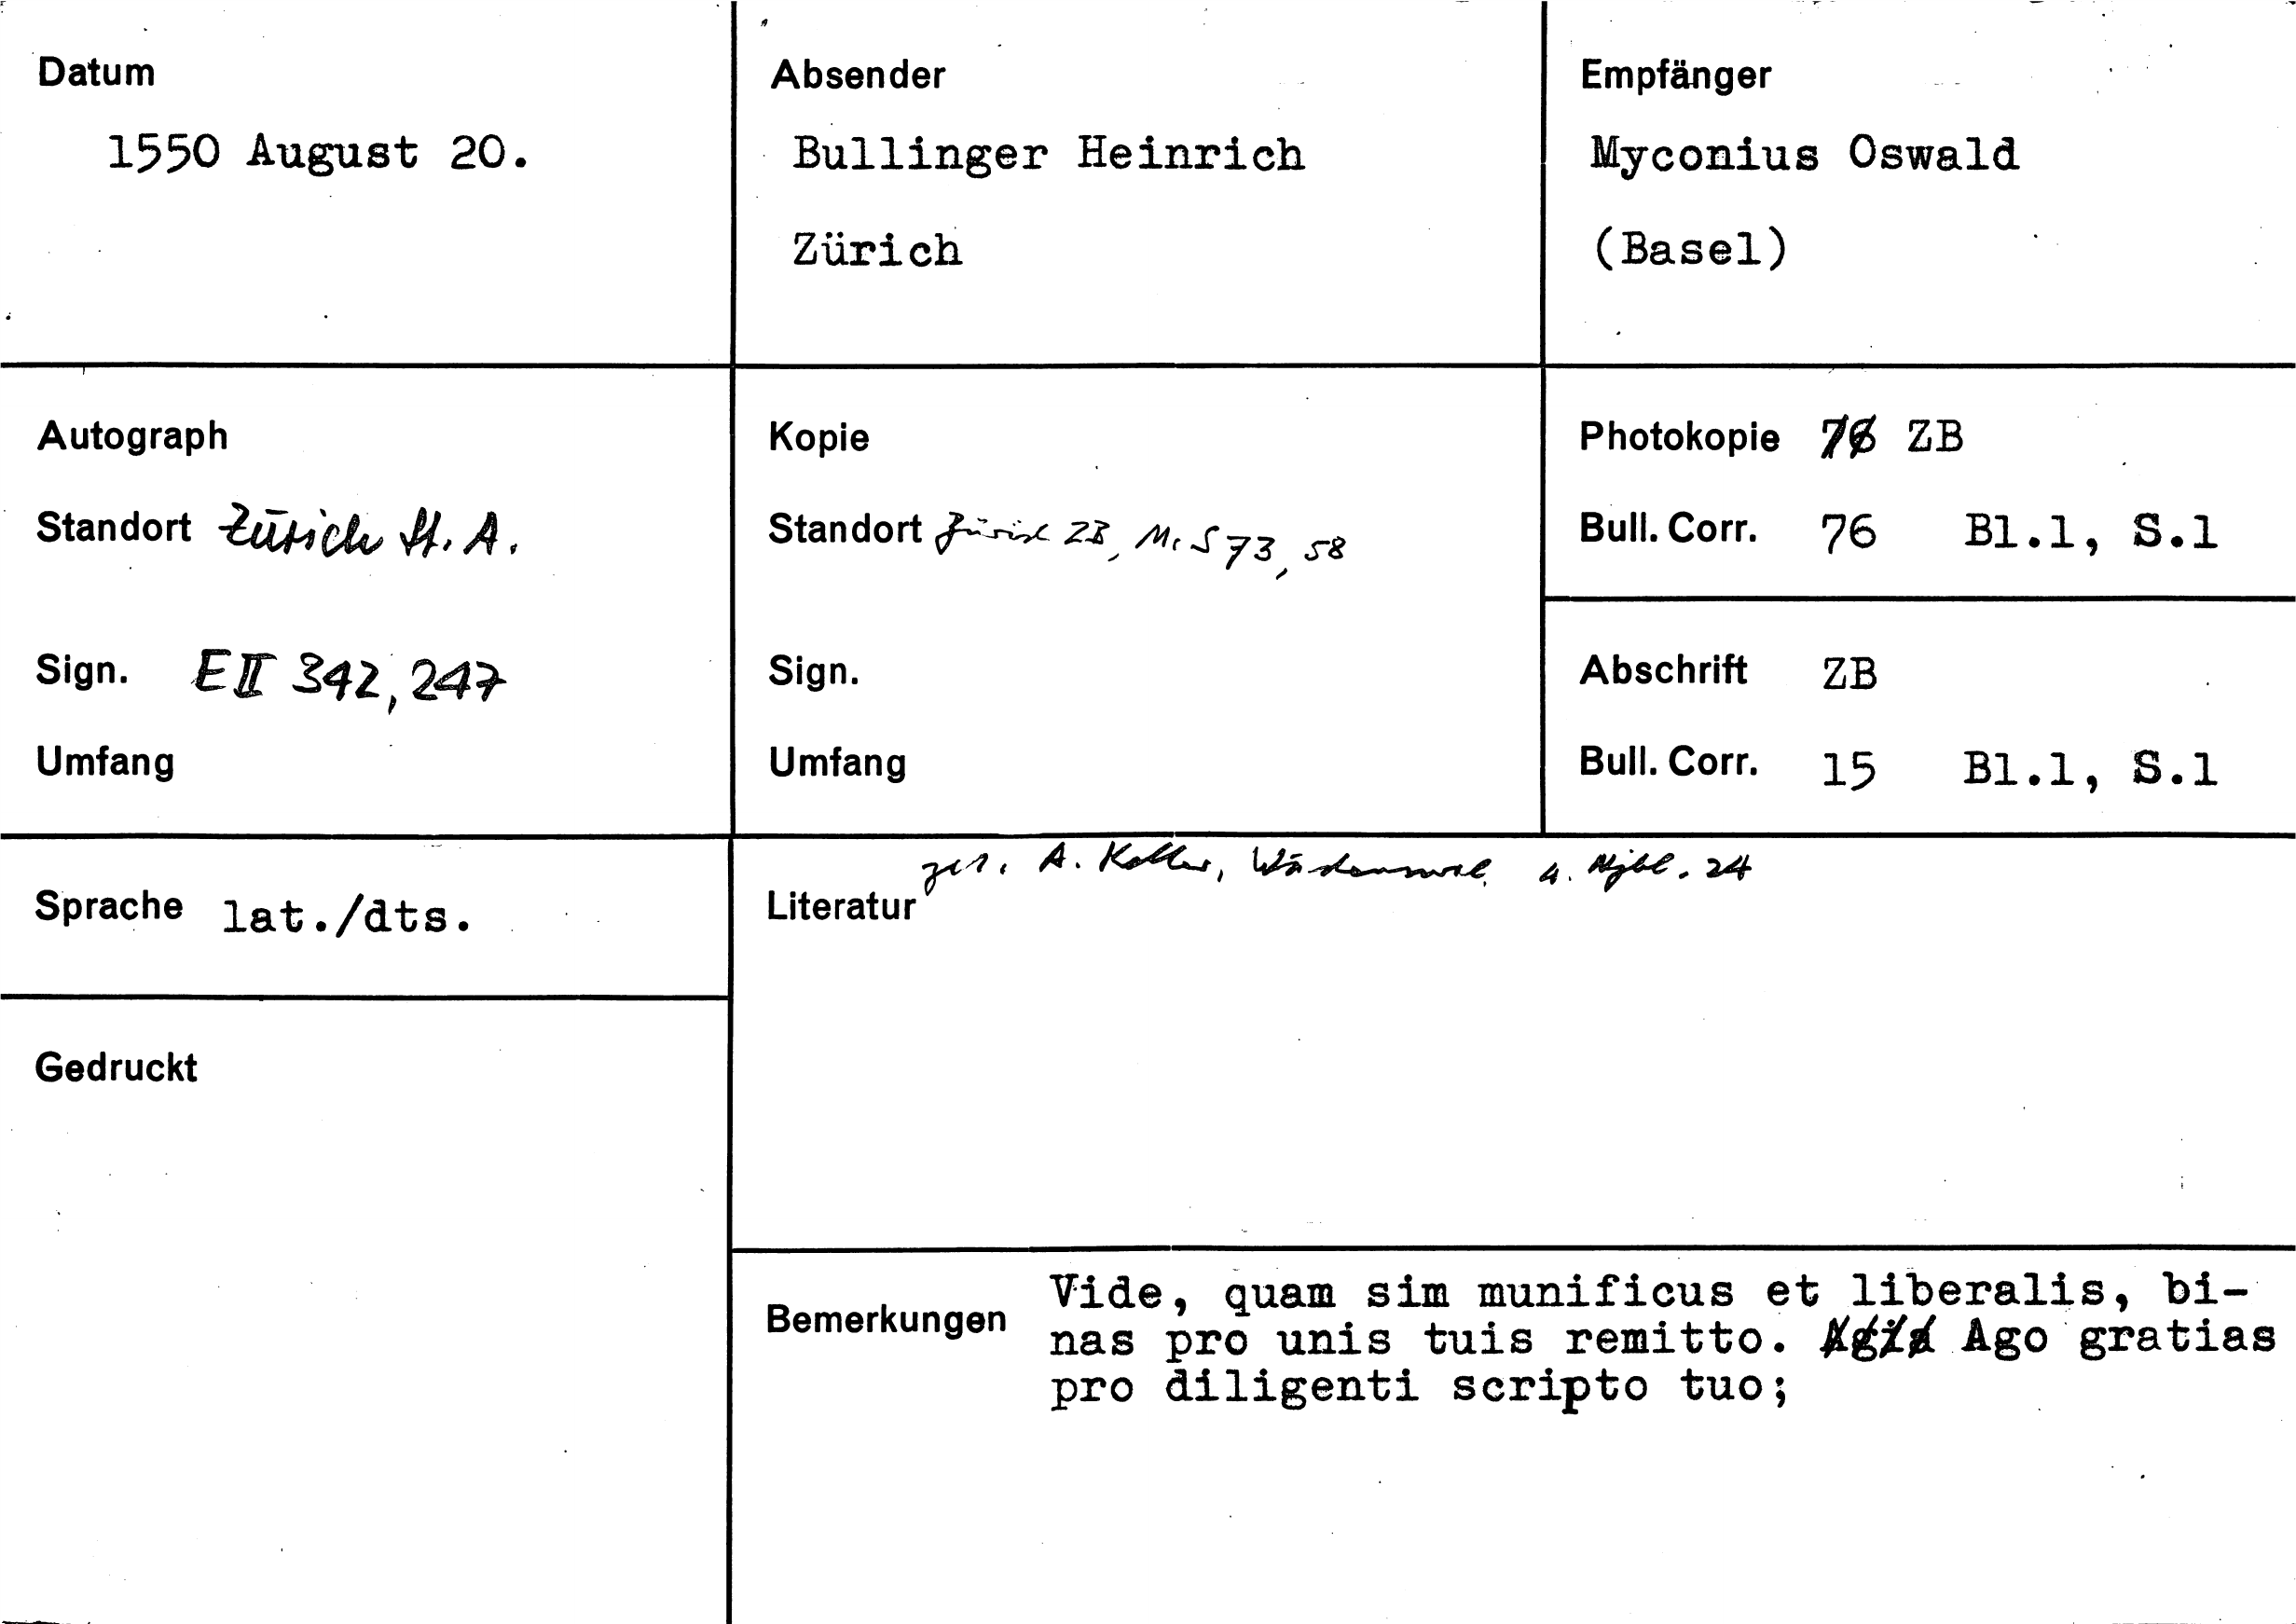 Datum
1550 August 20.
Absender
Bullinger Heinrich
Zürich
Empfänger
Myconius Oswald
(Basel)
Autograph
Standort Zürich St. A.
Sign. E II 342, 247
Umfang
Kopie
Standort Zürich ZB, Ms S 73, 58
Sign.
Umfang
Photokopie 76 ZB
Bull. Corr. 76 Bl.1, S.1
Abschrift ZB
Bull. Corr. 15 Bl.1, S.1
Sprache lat./dts.
Gedruckt
A. Keller, 24
Literatur
Bemerkungen Vide, quam sim munificus et liberalis, bi-
nas pro unis tuis remitto. Ago gratias
pro diligenti scripto tuo;